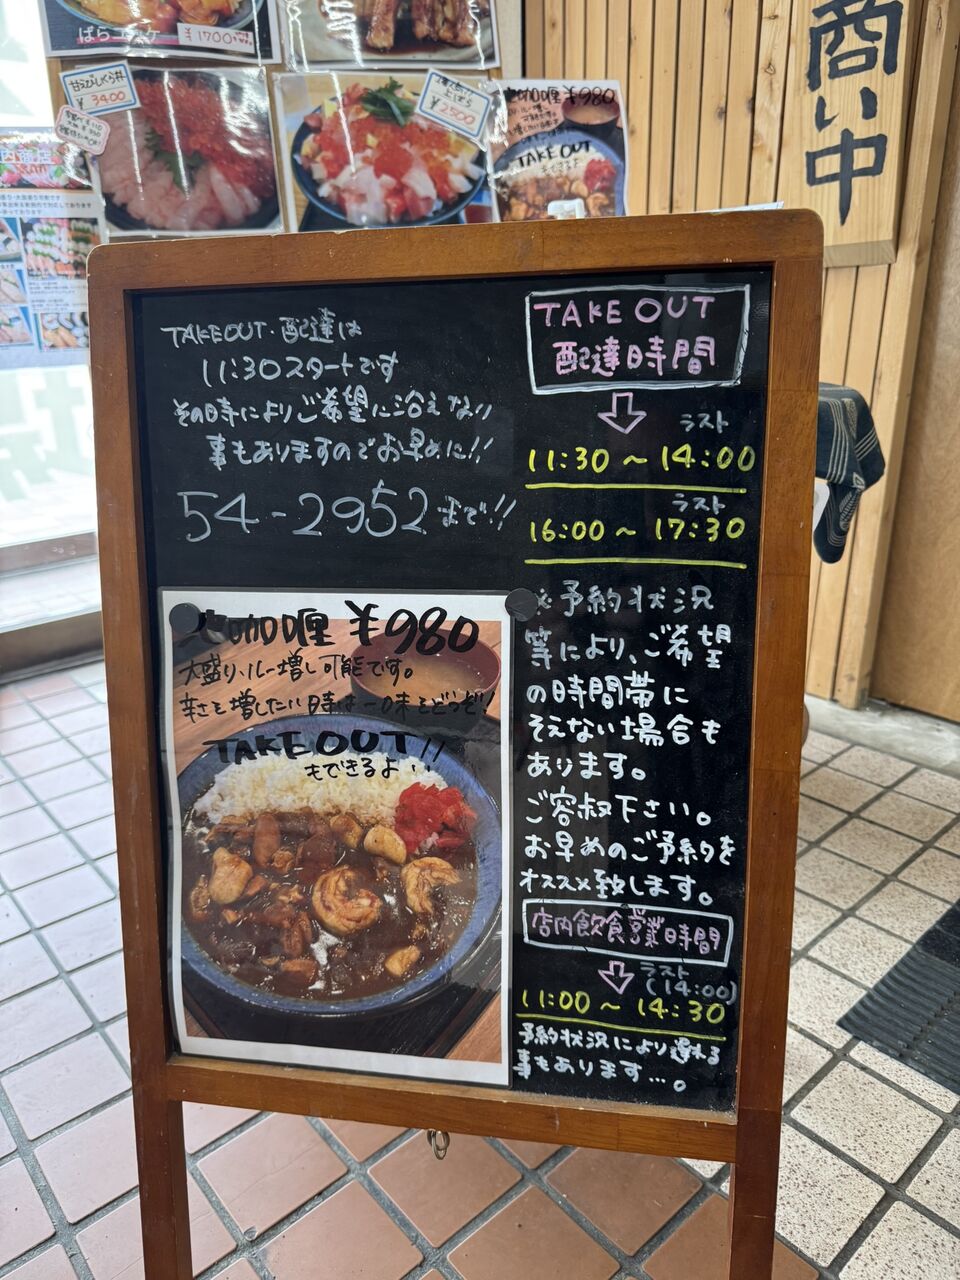 ¥1700
甘えびいくら丼
¥3400
上ばら
¥2500
¥980
TAKE OUT
できるよ
商い中
TAKEOUT・配達は
11:30スタートです
その時によりご希望に沿えない
事もありますのでお早めに!!
54-2952まで!!
TAKE OUT
配達時間
ラスト
11:30～14:00
ラスト
16:00～17:30
※予約状況
等により、ご希望
の時間帯に
そえない場合も
あります。
ご容赦下さい。
お早めのご予約を
オススメ致します。
店内飲食営業時間
ラスト
(14:00)
11:00～14:30
予約状況により遅れる
事もあります…。
咖喱 ¥980
大盛り、ルー増し可能です。
辛さを増したい時は一味をどうぞ!
TAKE OUT!!
もできるよ